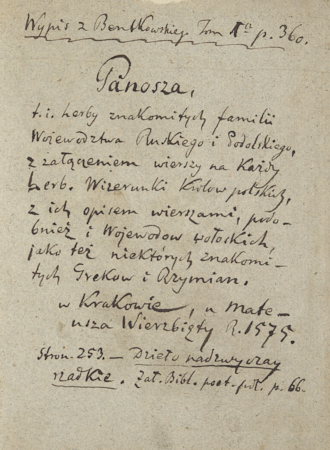 Wypis z Bentkowskiego Tom 1º p. 360.
Panosza,
t. i. herby znakomitych familii
Województwa Ruskiego i Podolskiego,
z załączeniem wierszy na każdy
herb. Wizerunki Królow polskich,
z ich opisem wierszami, podo-
bnież i Wojewodow wołoskich,
jako też niektórych znakomi-
tych Greków i Rzymian.
w Krakowie, u Mate-
usza Wierzbięty R. 1575.
Stron. 253. — Dzieło nadzwyczay
rzadkie. Zał. Bibl. poet. pol. p. 66.